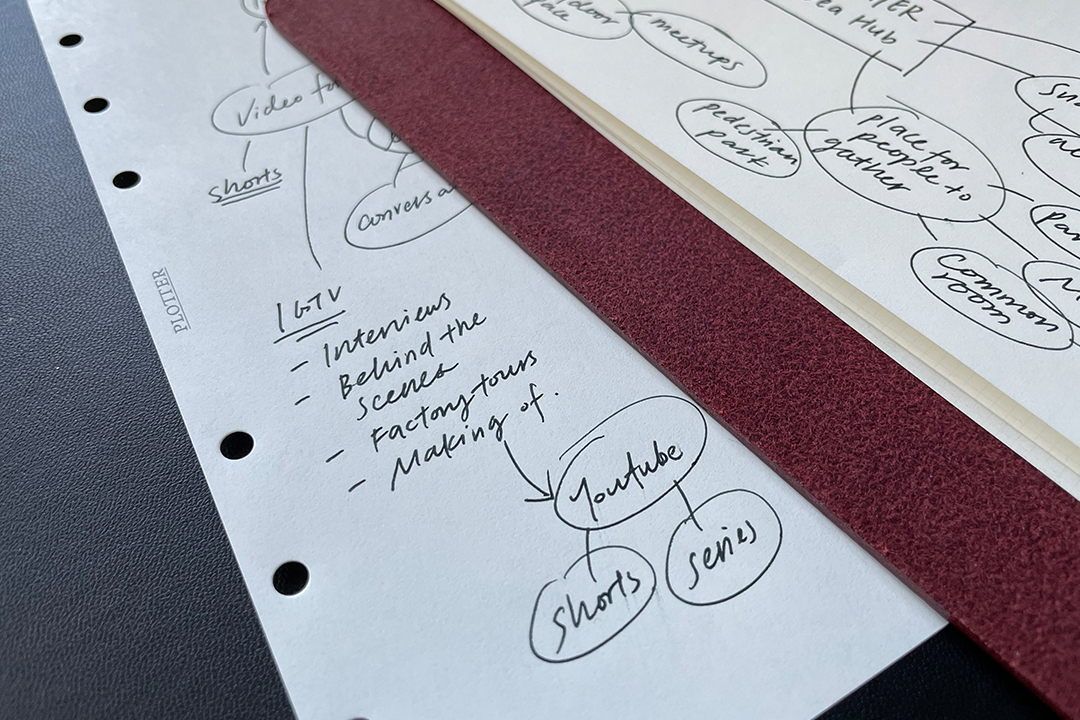 Video
shorts
PLOTTER
IGTV
- Interviews
- Behind the
scenes
- Factory tours
- Making of.
Youtube
shorts
series
door
meetups
Hub
pedestrian
park
place for
people to
gather
Common
room